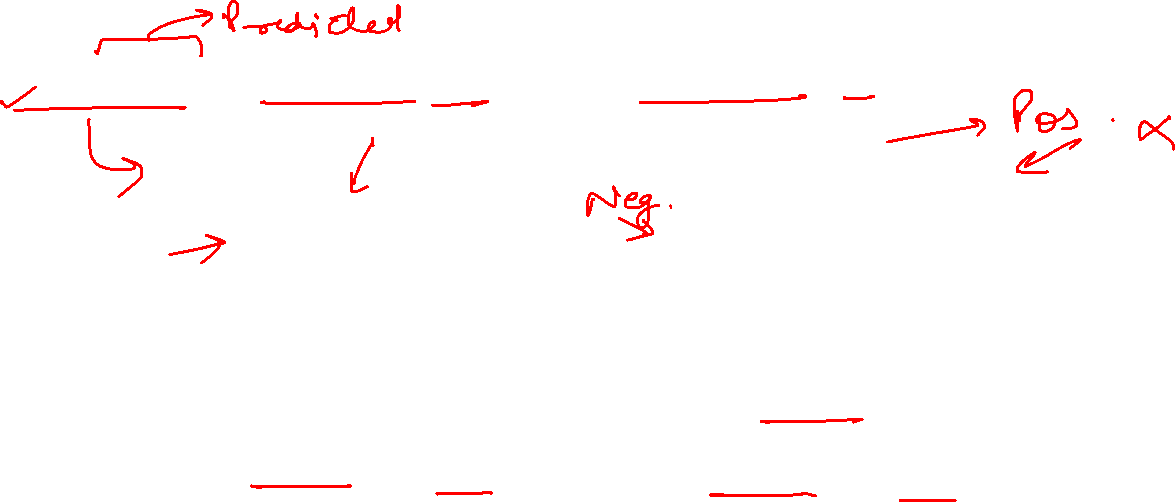 Predicted
Pos. α
Neg.